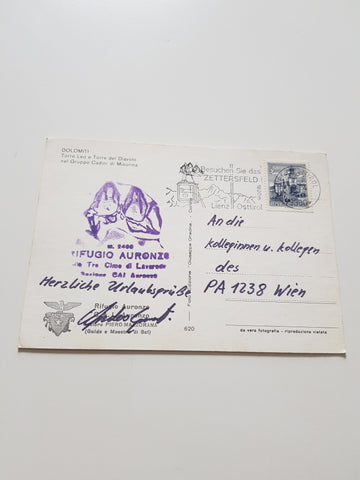 DOLOMITI
Torre Leo e Torre del Diavolo
nel Gruppo Cadini di Misurina
Besuchen Sie das
ZETTERSFELD
Lienz Osttirol
M. 2400
RIFUGIO AURONZO
Tre Cime di Lavaredo
Sezione CAI Auronzo
Herzliche Urlaubsgrüße
An die
Kolleginnen u. Kollegen
des
PA 1238 Wien
Rifugio Auronzo
PIERO MAZZORANA
(Guida e Maestro di Sci)
620
da vera fotografia - riproduzione vietata